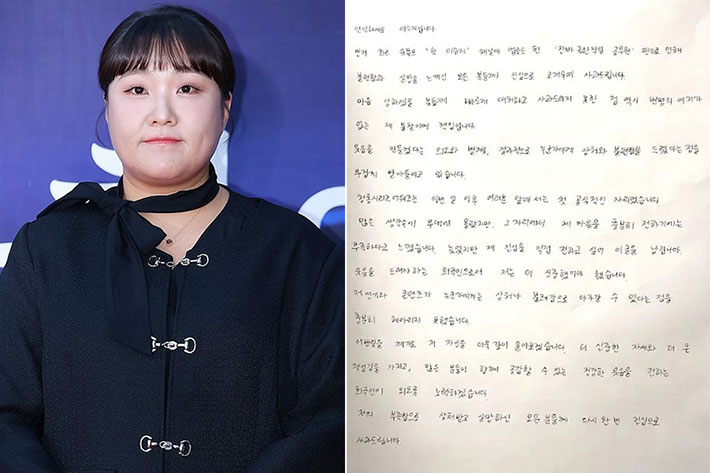 안녕하세요 이수지입니다.
먼저 최근 유튜브 '핫이슈지' 채널에 업로드 된 '진짜 극한직업 공무원' 편으로 인해
불편함과 실망을 느끼신 모든 분들께 진심으로 고개숙여 사과드립니다.
마음 상하셨을 분들께 빠르게 대처하고 사과드리지 못한 점 역시 변명의 여지가
없는 제 불찰이며 책임입니다.
웃음을 만들겠다는 의도와 별개로, 결과적으로 누군가에게 상처와 불편함을 드렸다는 점을
무겁게 받아들이고 있습니다.
청룡시리즈어워즈는 이번 일 이후 여러분 앞에 서는 첫 공식적인 자리였습니다.
많은 생각들이 무대에 올랐지만, 그 자리에서 제 마음을 충분히 전하기에는
부족하다고 느꼈습니다. 늦었지만 제 진심을 직접 전하고 싶어 이 글을 남깁니다.
웃음을 드려야 하는 희극인으로서 저는 더 신중했어야 했습니다.
저의 연기와 콘텐츠가 누군가에게는 상처나 불쾌감으로 다가갈 수 있다는 점을
충분히 헤아리지 못했습니다.
이번 일을 계기로 저 자신을 더욱 깊이 돌아보겠습니다. 더 신중한 자세와 더 큰
책임감을 가지고, 많은 분들이 함께 공감할 수 있는 건강한 웃음을 전하는
희극인이 되도록 노력하겠습니다.
저의 부족함으로 상처받고 실망하신 모든 분들께 다시 한 번 진심으로
사과드립니다.